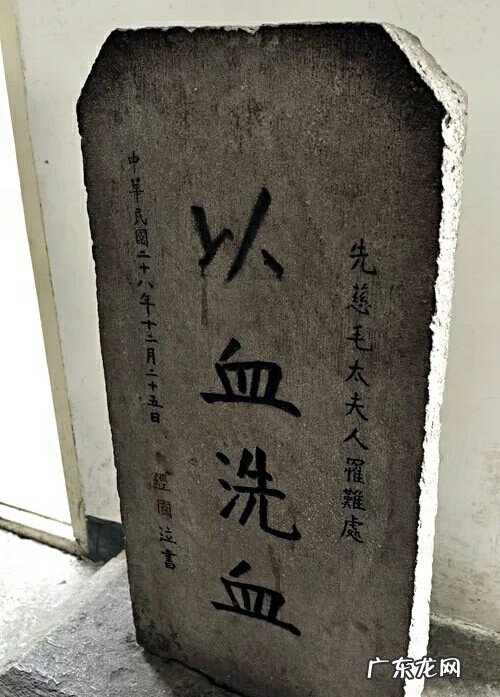 先慈毛太夫人罹難處
以血洗血
中華民國二十八年十二月二十五日
經國泣書
广东龙网